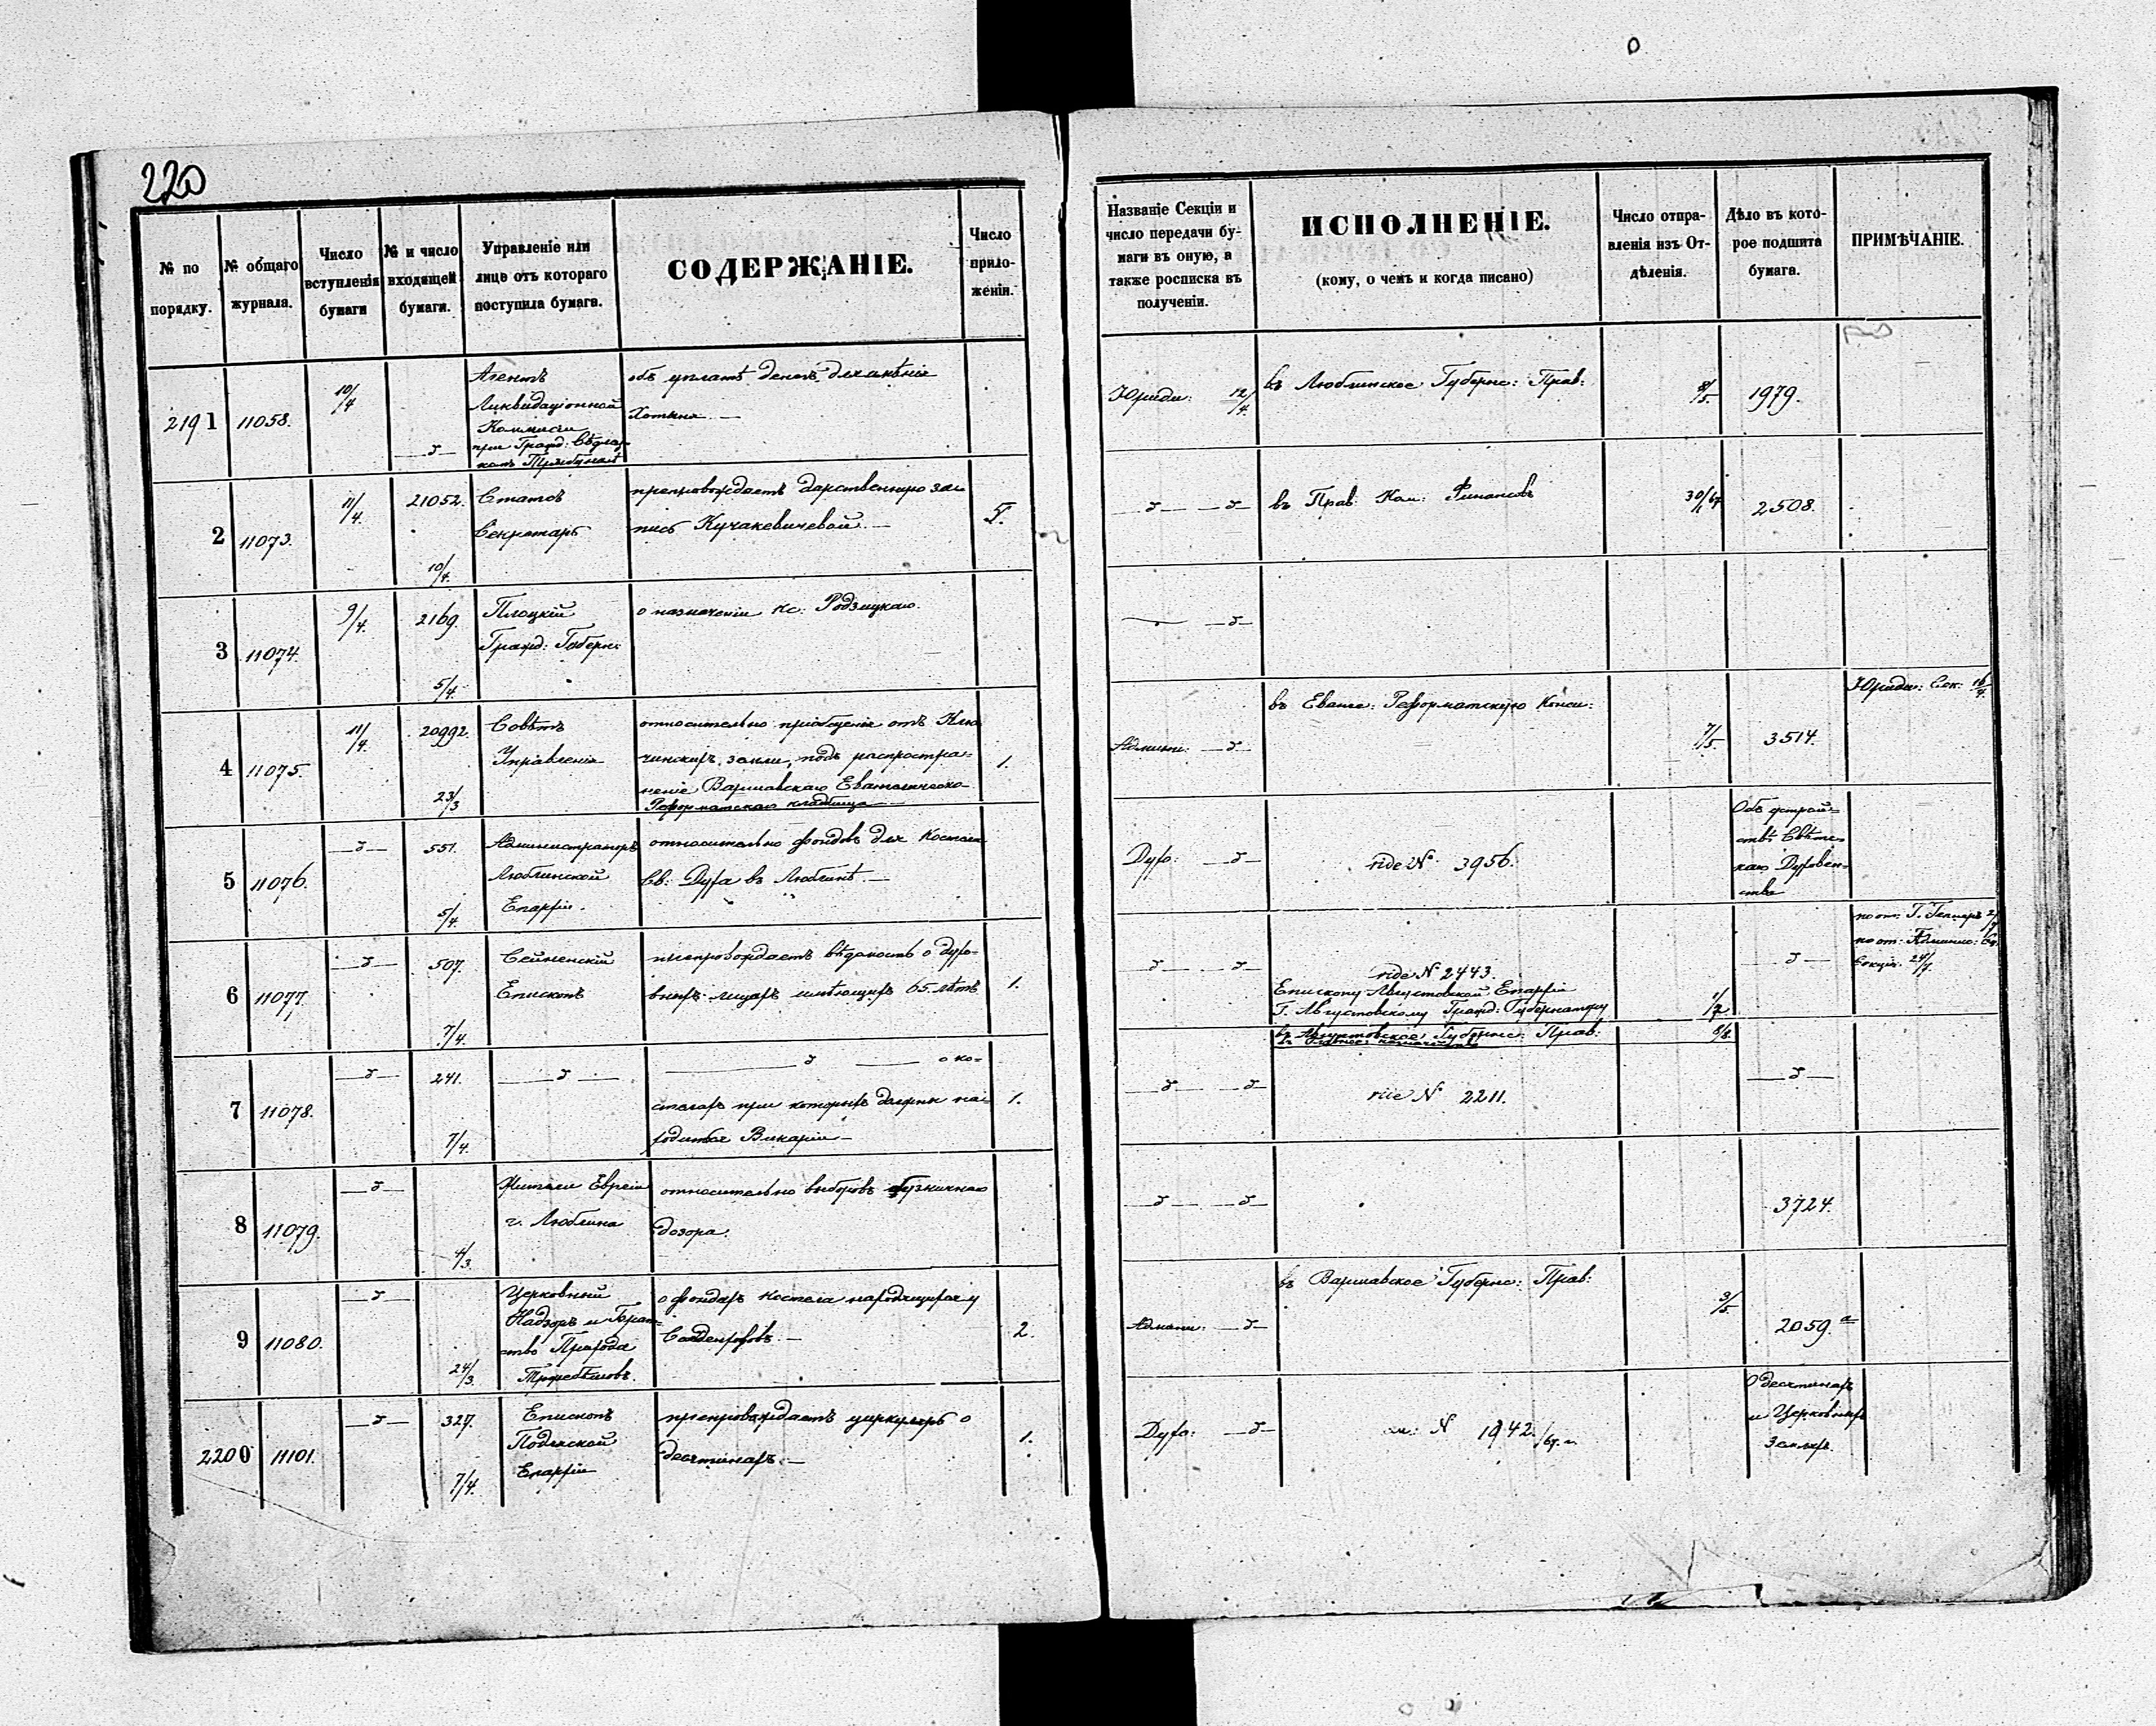 220
№ по порядку.
№ общаго журнала.
Число вступленія бумаги
№ и число входящей бумаги.
Управленіе или лице отъ котораго поступила бумага.
СОДЕРЖАНІЕ.
Число приложеніи.
Названіе Секціи и число передачи бумаги въ оную, а также росписка въ полученіи.
ИСПОЛНЕНІЕ.
(кому, о чемъ и когда писано)
Число отправленія изъ Отдѣленія.
Дѣло въ которое подшита бумага.
ПРИМѢЧАНІЕ.
2191 11058. 10/4
Агентъ
Ликвидаціонной
Коммисіи
при Гражд:
объ уплатѣ денегъ
Юриди: 12/4.
въ Люблинское Губернс: Прав:
8/5. 1979.
2 11073. 11/4. 21052. 10/4.
Статсъ
Секретарь
препровождаетъ дарственную за-
пись Кучакевичевой.—
въ Прав: Ком: Финансовъ
2508.
3 11074. 9/4. 2169. 5/4.
Плоцкій
Гражд: Губерн:
о назначеніи Кс:
4 11075. 11/4. 20992. 23/3
Совѣтъ
Управленія
относительно пріобщенія отъ
земли, подъ распростра-
неніе Варшавскаго Евангелическо-
Реформатскаго кладбища
1.
Админи:
въ Еванге: Реформатскую Конси:
7/5. 3514.
Юриди: Сек: 16/4.
5 11076. 551. 5/4.
Администраторъ
Люблинской
Епархіи.
относительно фондовъ для Костела
Св: Духа въ Люблинѣ.—
Духо:
vide № 3956.
Объ устрой-
ствѣ Свѣтс-
каго Духовен-
ства
6 11077. 507. 7/4.
Сейненскій
Епископъ
препровождаетъ вѣдомость о духо-
вныхъ лицахъ имѣющихъ 65. лѣтъ
1.
vide № 2443.
Епископу Августовской Епархіи
Г. Августовскому Гражд: Губернатору
въ Августовское Губернс: Прав:
8/8.
7 11078. 241. 7/4.
о ко-
стелахъ при которыхъ должны на-
ходиться Викаріи—
1.
vide № 2211.
8 11079. 4/3.
Жители Евреи
г. Люблина
относительно выборовъ божничнаго
дозора.
3724.
9 11080. 24/3.
Церковный
Надзоръ и
Прихода
о фондахъ костела
2.
Админи:
въ Варшавское Губернс: Прав:
3/5. 2059.а
2200 11101. 327. 7/4.
Епископъ
Подляской
Епархіи
препровождаетъ циркуляръ о
десятинахъ.—
1.
Духо:
см: № 1942./67. г.
О десятинахъ
и Церковныхъ
Земляхъ.